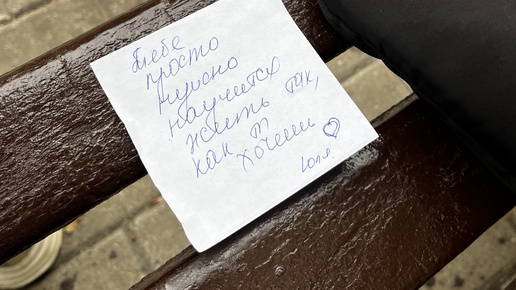 Тебе
просто
нужно
научится
жить так,
как ты
хочеш ♡
Юля.